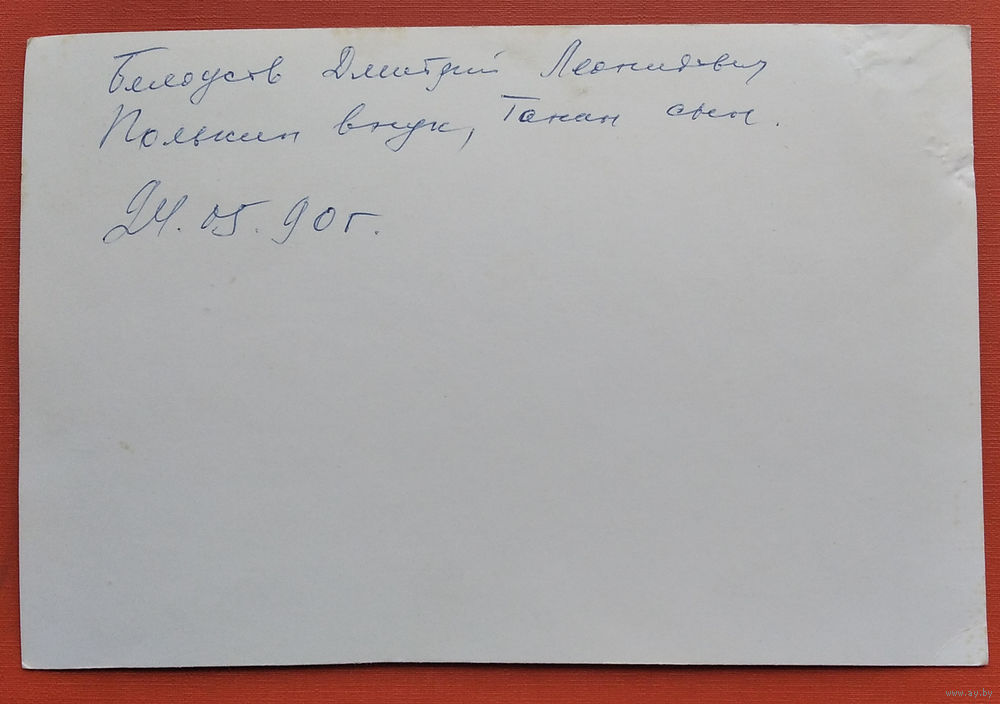 Белоусов Дмитрий Леонидович
Полькин внук, Танин сын.
24.05.90г.
www.ay.by